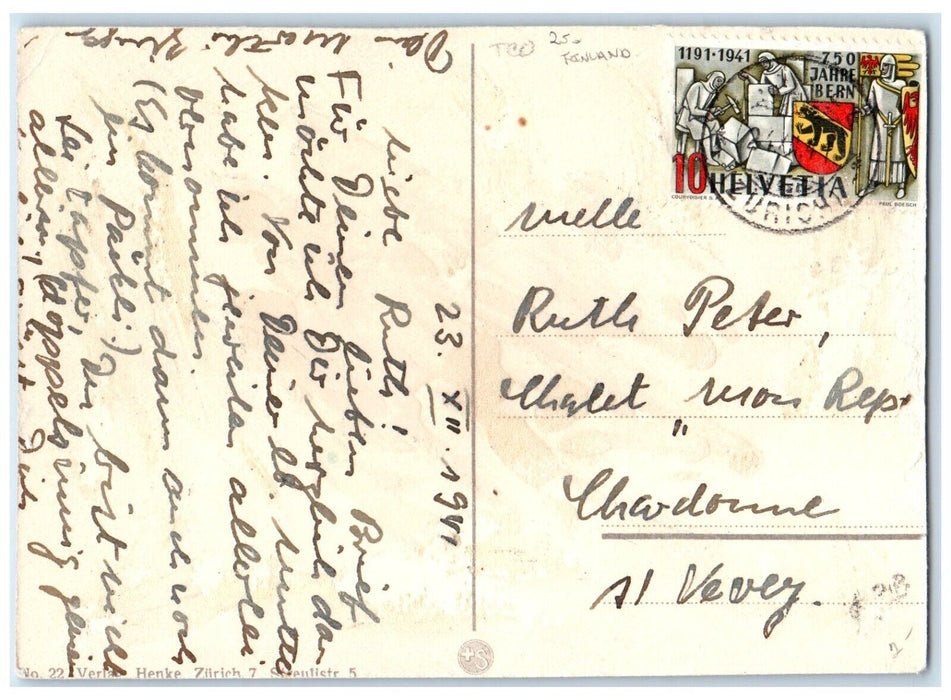 23. XII. 1941
Liebe Ruth!
Für Deinen lieben Brief
möchte ich Dir herzlich dan
ken. Von Deiner lb. Mutter
habe ich jeweilen allerlei
vernommen.
(Es kommt dann auch noch
ein Päckli!) Du bist nicht
Sei tapfer,
allein,
grüsst Dich
Dein
TCO
25-
FINLAND
1191·1941
750
JAHRE
BERN
10 HELVETIA
COURVOISIER S.A.
PAUL BOESCH
ZÜRICH
Melle
Ruth Peter,
Chalet "mon Repos"
Chardonne
s/ Vevey.
No. 22 Verlag Henke Zürich 7, Streulistr. 5
+S